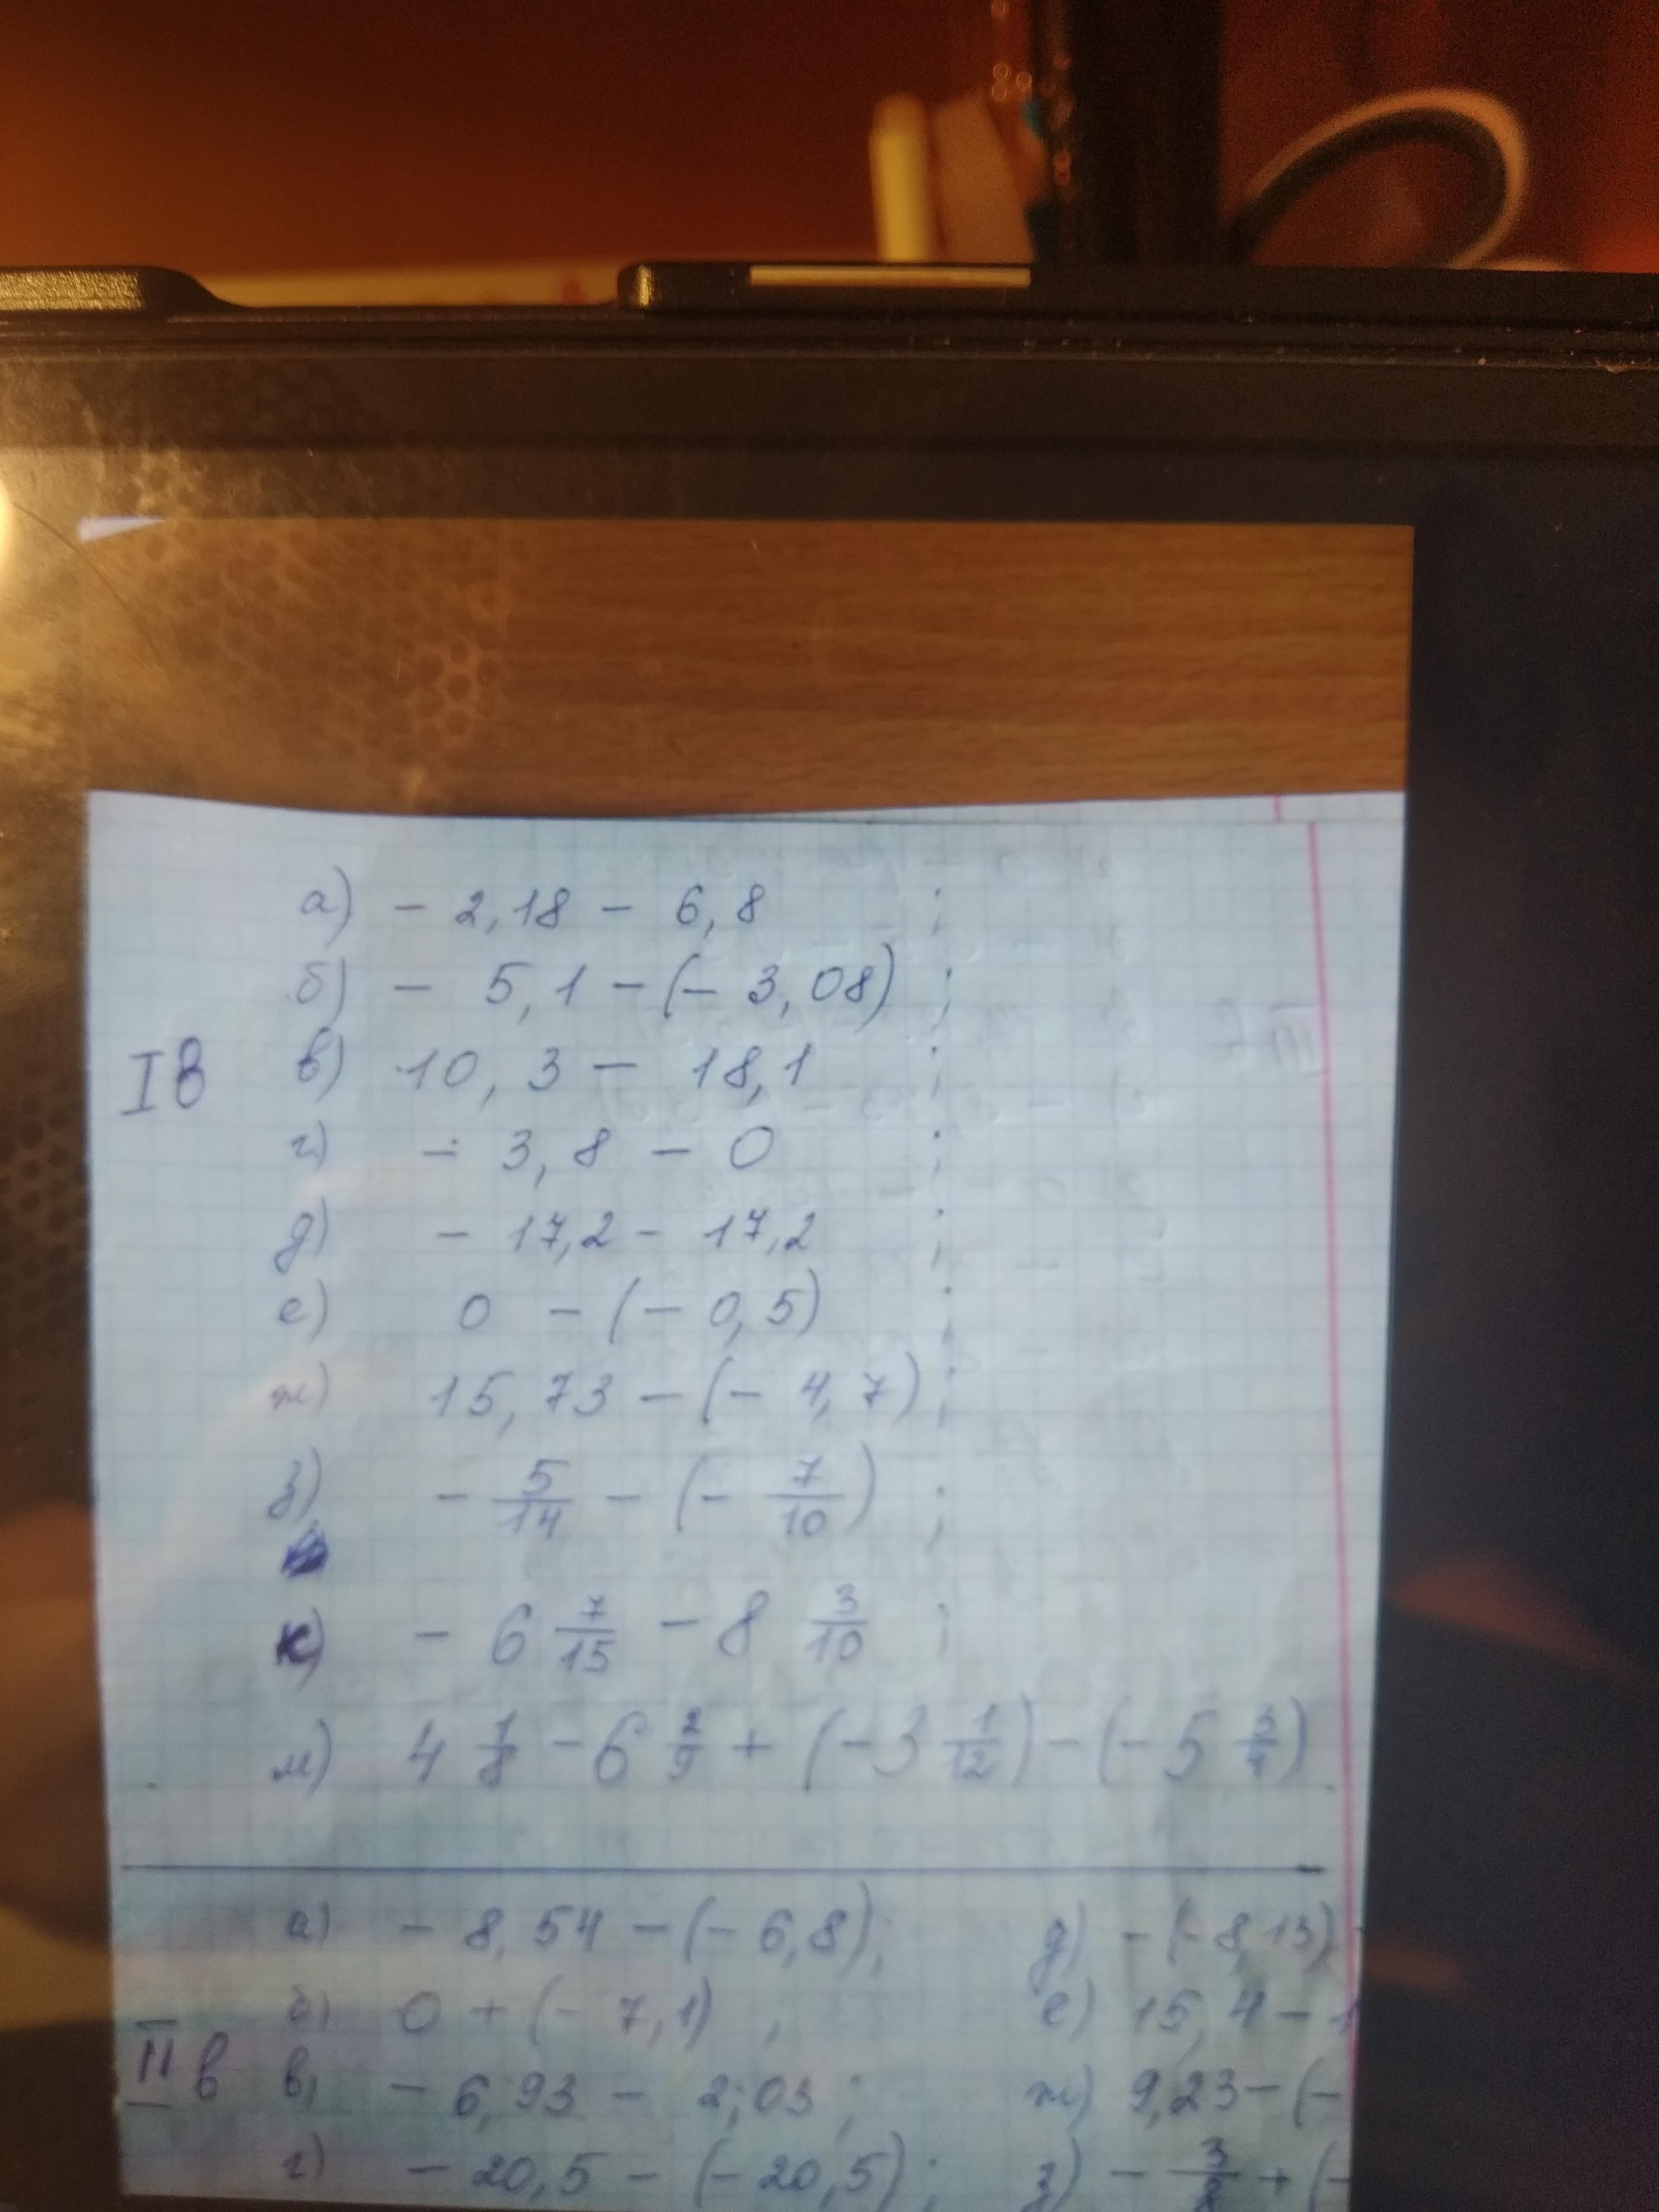 а) - 2,18 - 6,8 ;
б) - 5,1 - (- 3,08) ;
I в в) 10,3 - 18,1 ;
г) - 3,8 - 0 ;
д) - 17,2 - 17,2 ;
е) 0 - (- 0,5) ;
ж) 15,73 - (- 4,7) ;
з) - 5/14 - (- 7/10) ;
к) - 6 7/15 - 8 3/10 ;
м) 4 1/8 - 6 2/9 + (- 3 1/12) - (- 5 3/4)
а) - 8,54 - (- 6,8) ; д) - (- 8,13)
б) 0 + (- 7,1) ; е) 15,4 - 1
II в в) - 6,93 - 2,03 ; ж) 9,23 - (-
г) - 20,5 - (- 20,5) ; з) - 3/8 + (-